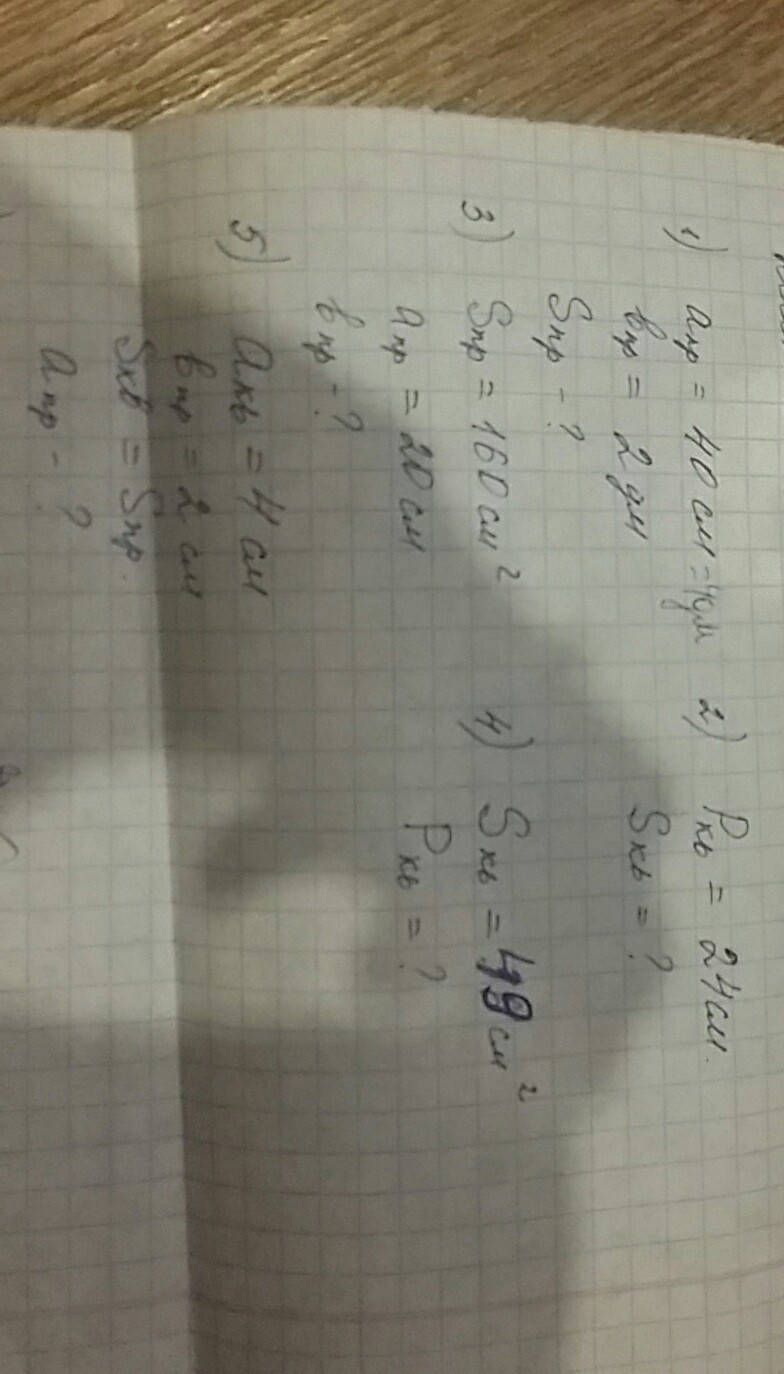 1) aпр = 40 см = 4дм
bпр = 2 дм
Sпр - ?
2) Pкв = 24 см.
Sкв = ?
3) Sпр = 160 см²
aпр = 20 см
bпр - ?
4) Sкв = 49 см²
Pкв = ?
5) aкв = 4 см
bпр = 2 см
Sкв = Sпр.
aпр - ?